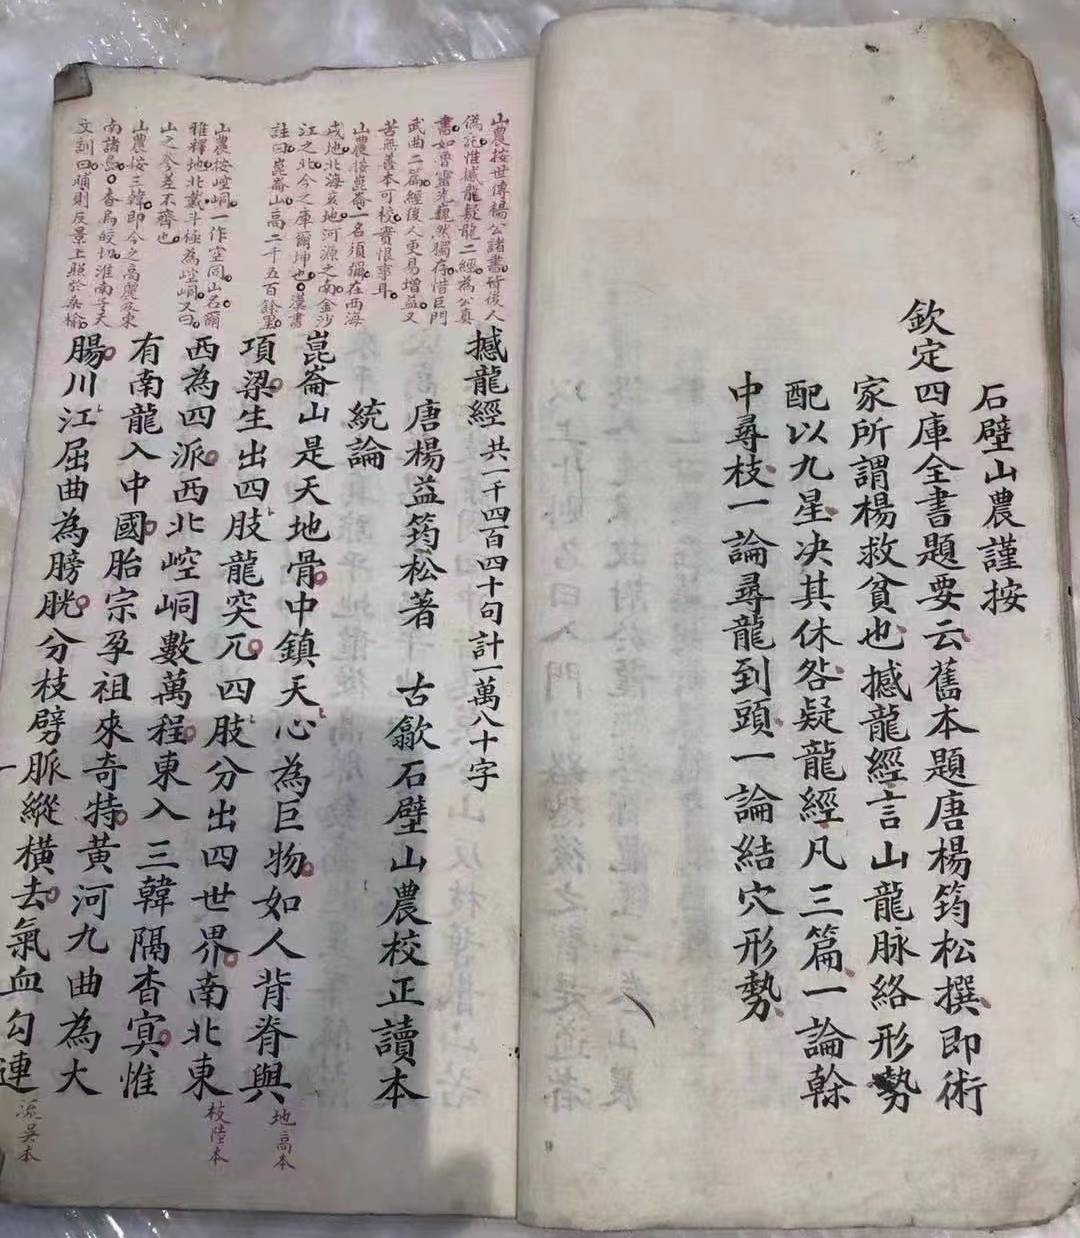 石壁山農謹按
欽定四庫全書題要云舊本題唐楊筠松撰即術
家所謂楊救貧也撼龍經言山龍脉絡形勢
配以九星决其休咎疑龍經凡三篇一論榦
中尋枝一論尋龍到頭一論結穴形勢
山農按世傳楊公諸書所後人
偽託惟撼龍疑龍二經為公真
書如魯靈光巍然獨存惜巨門
武曲二篇經後人更易增益又
苦無善本可校實恨事耳
山農按崑崙一名須彌在西海
戌地北海亥地河源之南金沙
江之北今之庫爾坤也漢書
註曰崑崙山高二千五百餘里
山農按崆峒一作空同山名爾
雅釋地北戴斗極為崆峒又曰
山之參差不齊也
山農按三韓即今之高麗及東
南諸島杳烏皎切淮南子天
文訓曰晡則反景上照於桑榆
撼龍經共一千四百四十句計一萬八十字
唐楊益筠松著 古歙石壁山農校正讀本
統論
崑崙山是天地骨中鎮天心為巨物如人背脊與
項梁生出四肢龍突兀四肢分出四世界南北東
西為四派西北崆峒數萬程東入三韓隔杳冥惟
有南龍入中國胎宗孕祖來奇特黃河九曲為大
腸川江屈曲為膀胱分枝劈脈縱橫去氣血勾連
地高本
枝陸本
流吳本